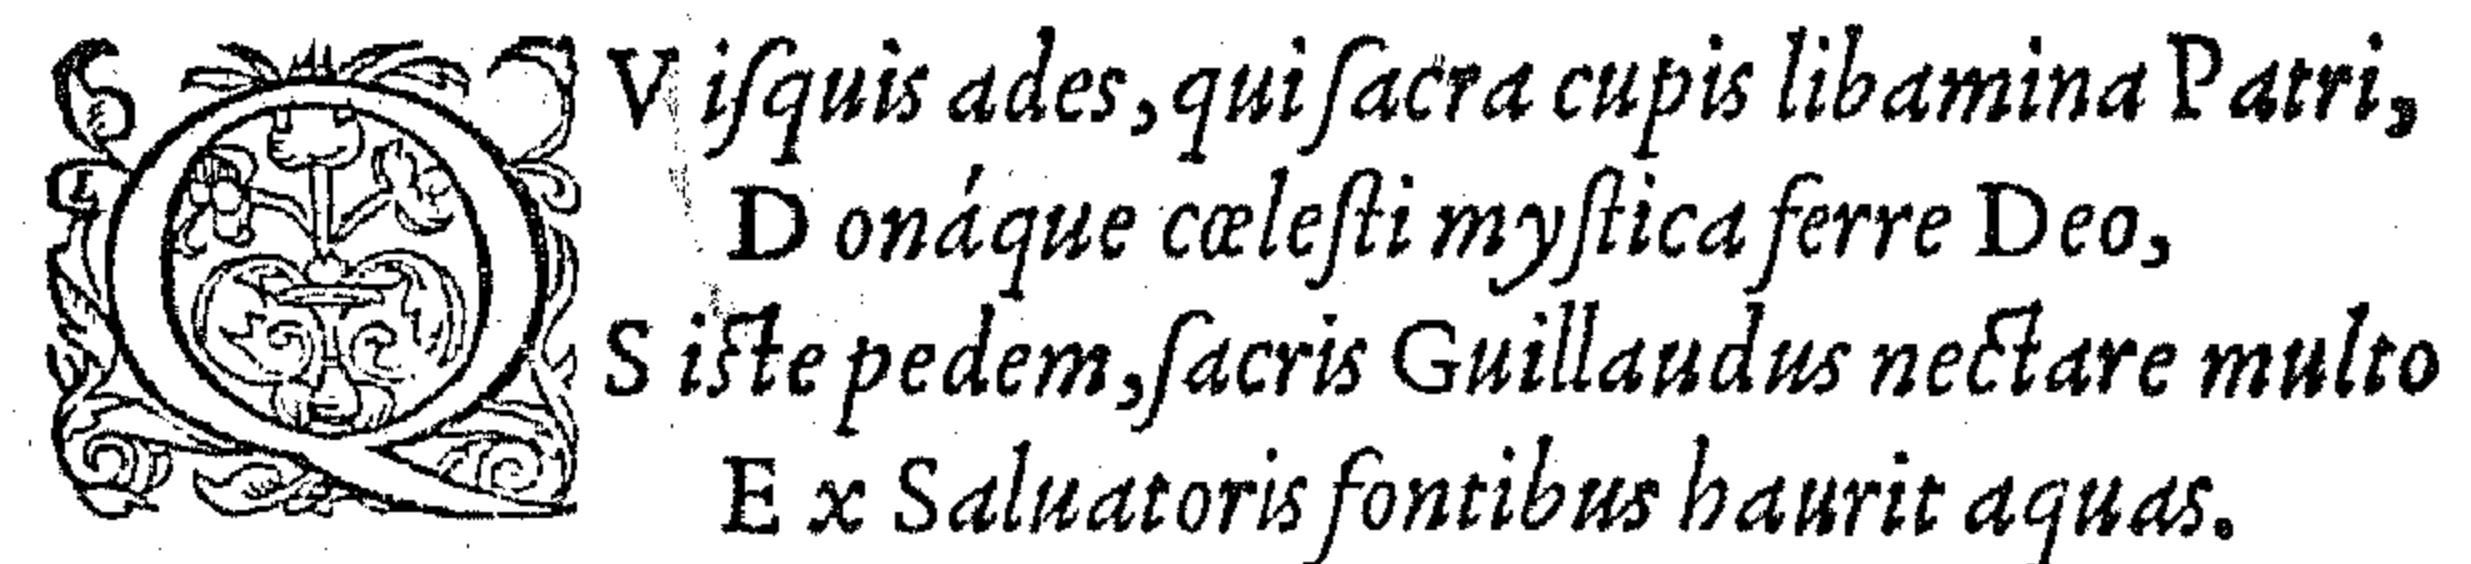 QViſquis ades, qui ſacra cupis libamina Patri,
Donáque cœleſti myſtica ferre Deo,
Siſte pedem, ſacris Guillaudus nectare multo
Ex Saluatoris fontibus haurit aquas.